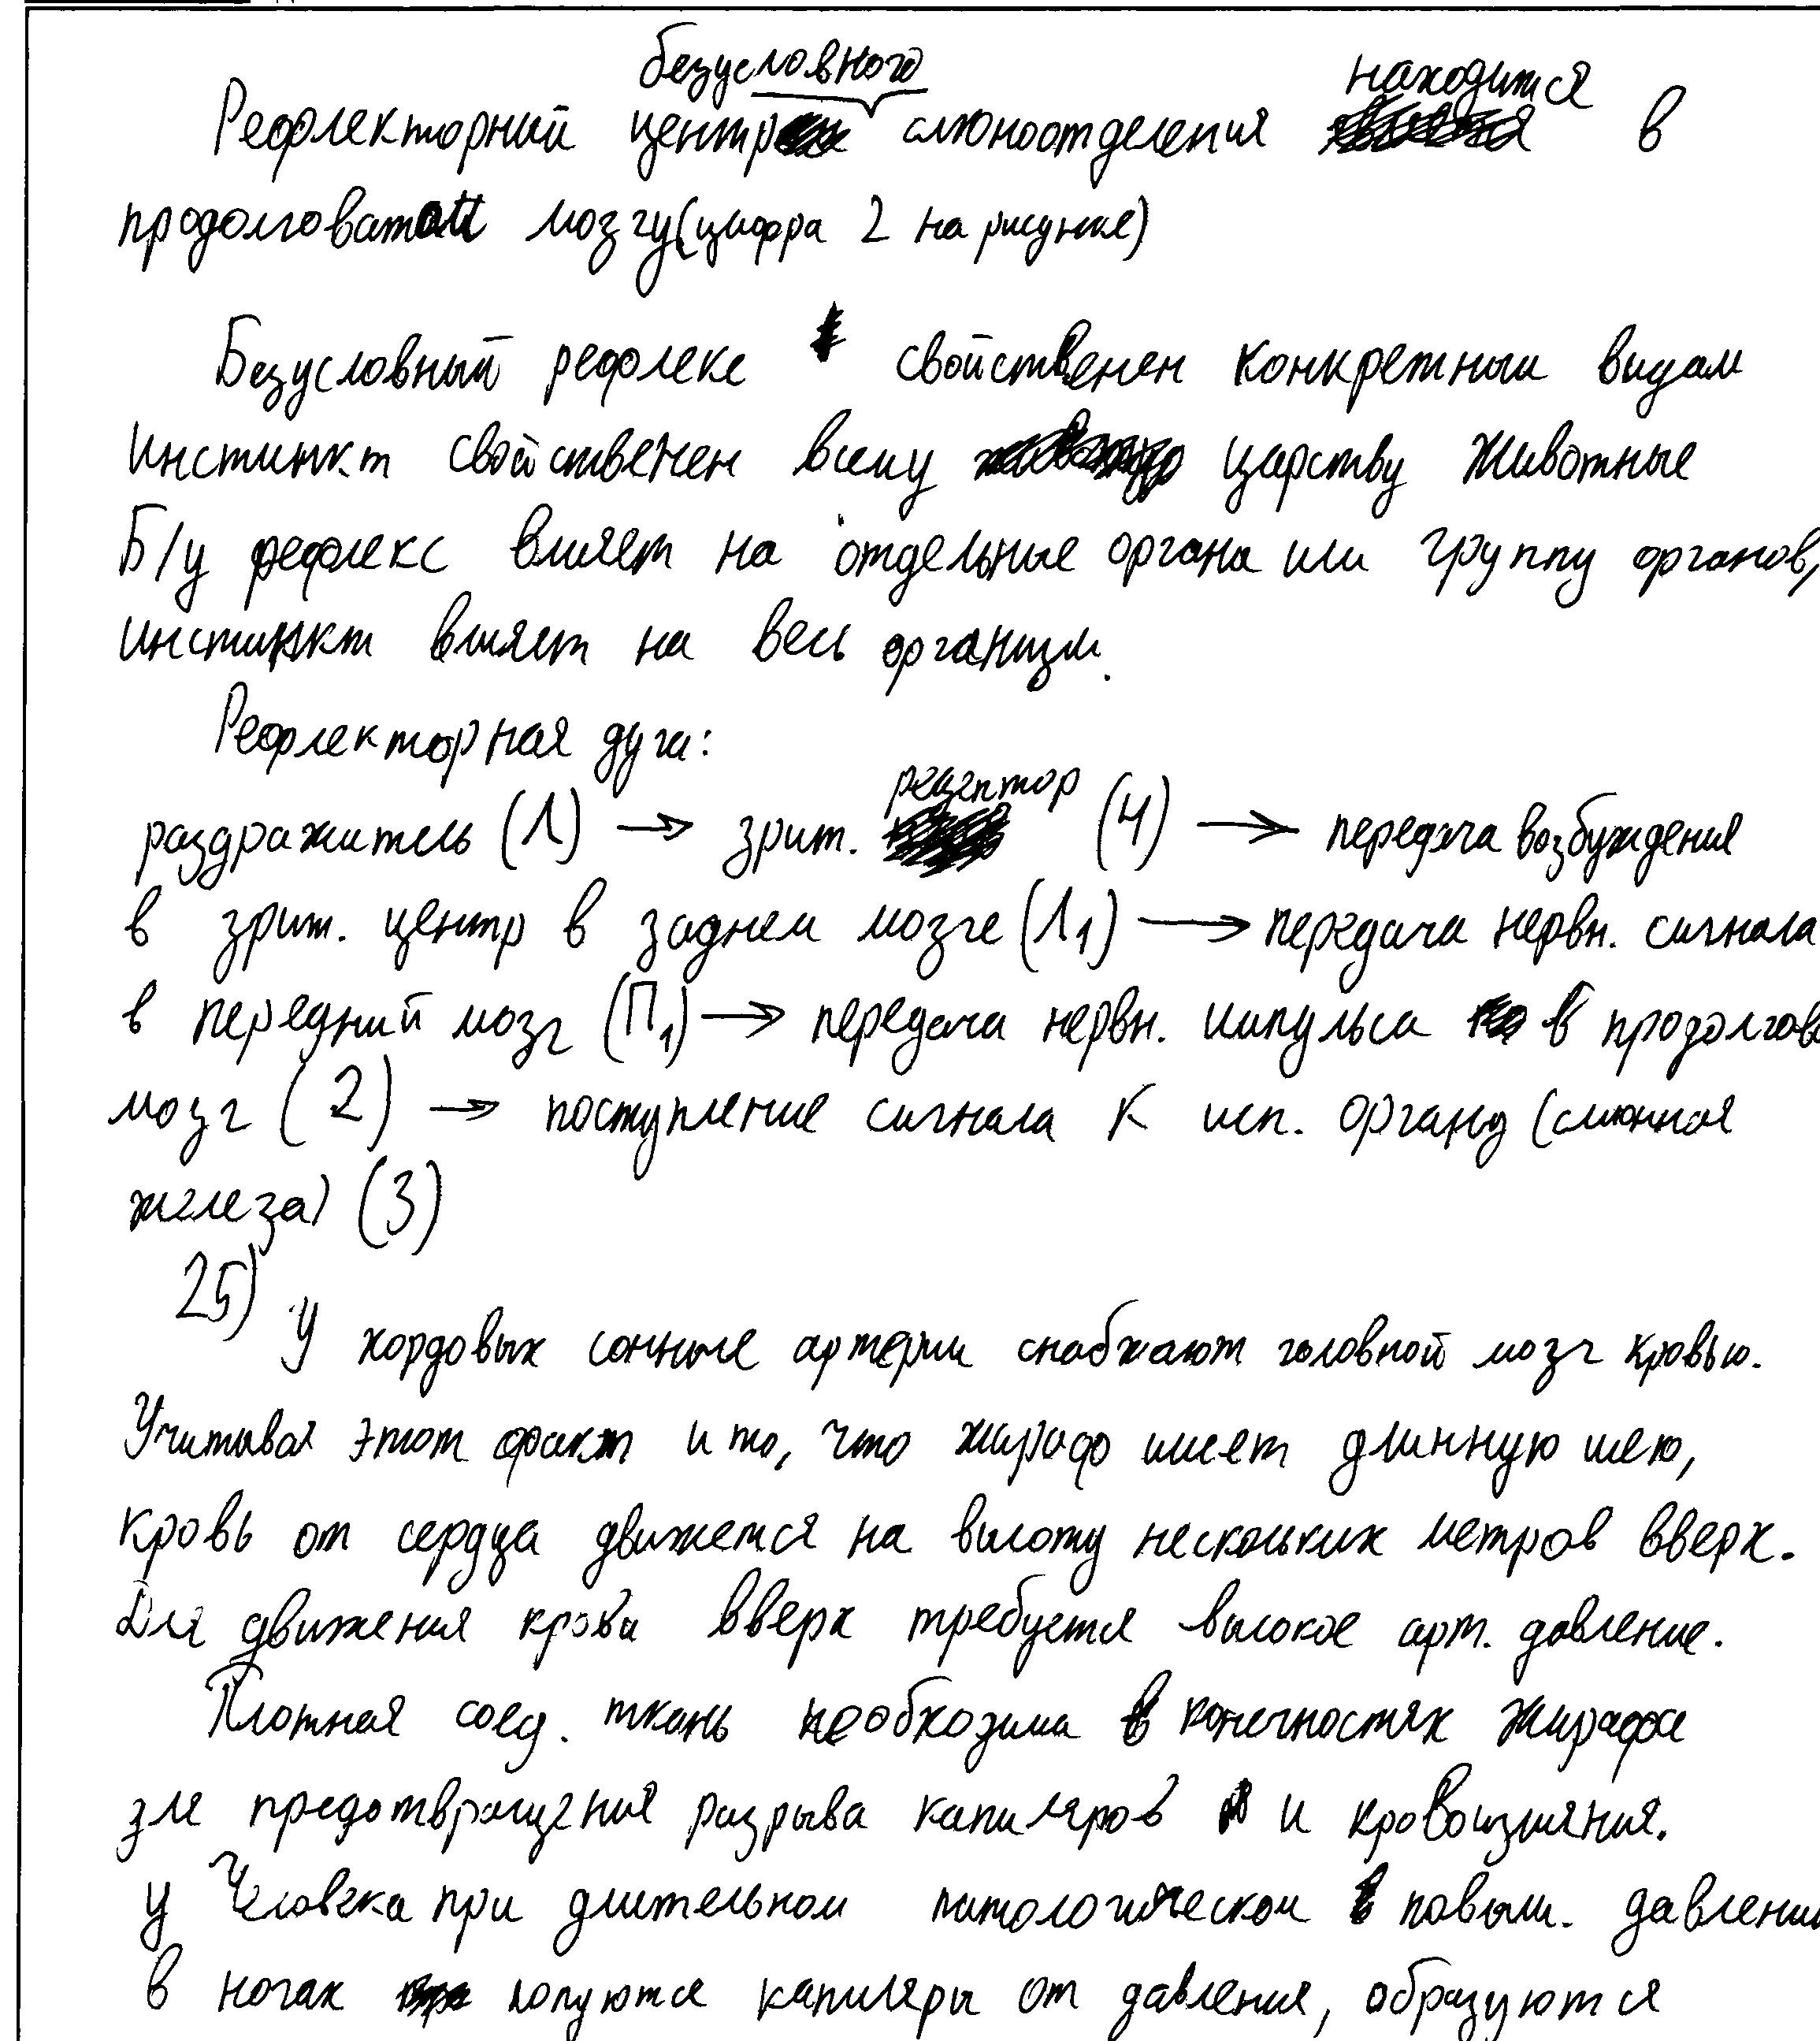 безусловного находится
Рефлекторный центр слюноотделения в
продолговатом мозгу (цифра 2 на рисунке)
Безусловный рефлекс свойственен конкретным видам
Инстинкт свойственен всему царству Животные
Б/у рефлекс влияет на отдельные органы или группу органов,
инстинкт влияет на весь организм.
Рефлекторная дуга:
рецептор
раздражитель (Л) → зрит. (4) → передача возбуждения
в зрит. центр в заднем мозге (Л1) → передача нервн. сигнала
в передний мозг (П1) → передача нервн. импульса в продолгова
мозг (2) → поступление сигнала к исп. органу (слюнная
железа) (3)
25) У хордовых сонные артерии снабжают головной мозг кровью.
Учитывая этот факт и то, что жираф имеет длинную шею,
кровь от сердца движется на высоту нескольких метров вверх.
Для движения крови вверх требуется высокое арт. давление.
Плотная соед. ткань необходима в конечностях жирафа
для предотвращения разрыва капиляров и кровоизлияния.
У человека при длительном патологическом повыш. давлени
в ногах лопуются капиляры от давления, образуются